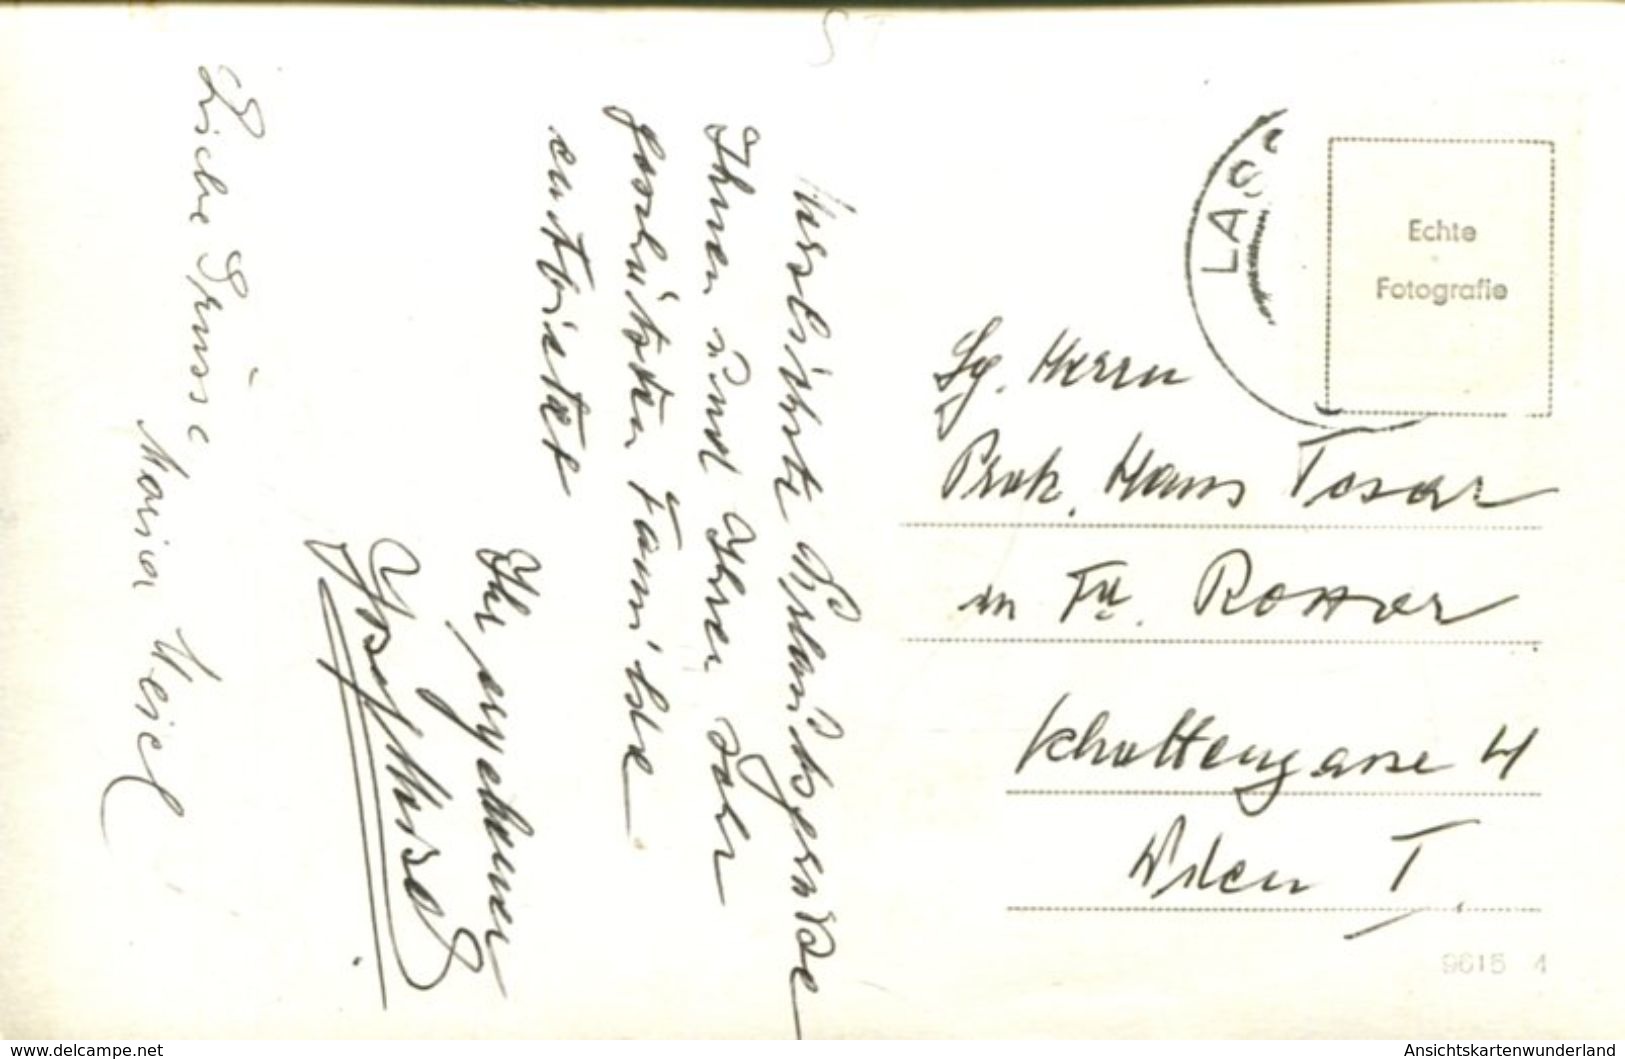 Herzlichste Urlaubsgrüsse
Ihnen und Ihrer sehr
geschätzten Familie
entbietet
Ihr ergebener
Josef
Liebe Grüsse
Maria Weisel
LAS
Echte
Fotografie
Sg. Herrn
Prok. Hans Tosar
in Fa. Rosser
Schottengasse 4
Wien I.
9615 4
www.delcampe.net
Ansichtskartenwunderland